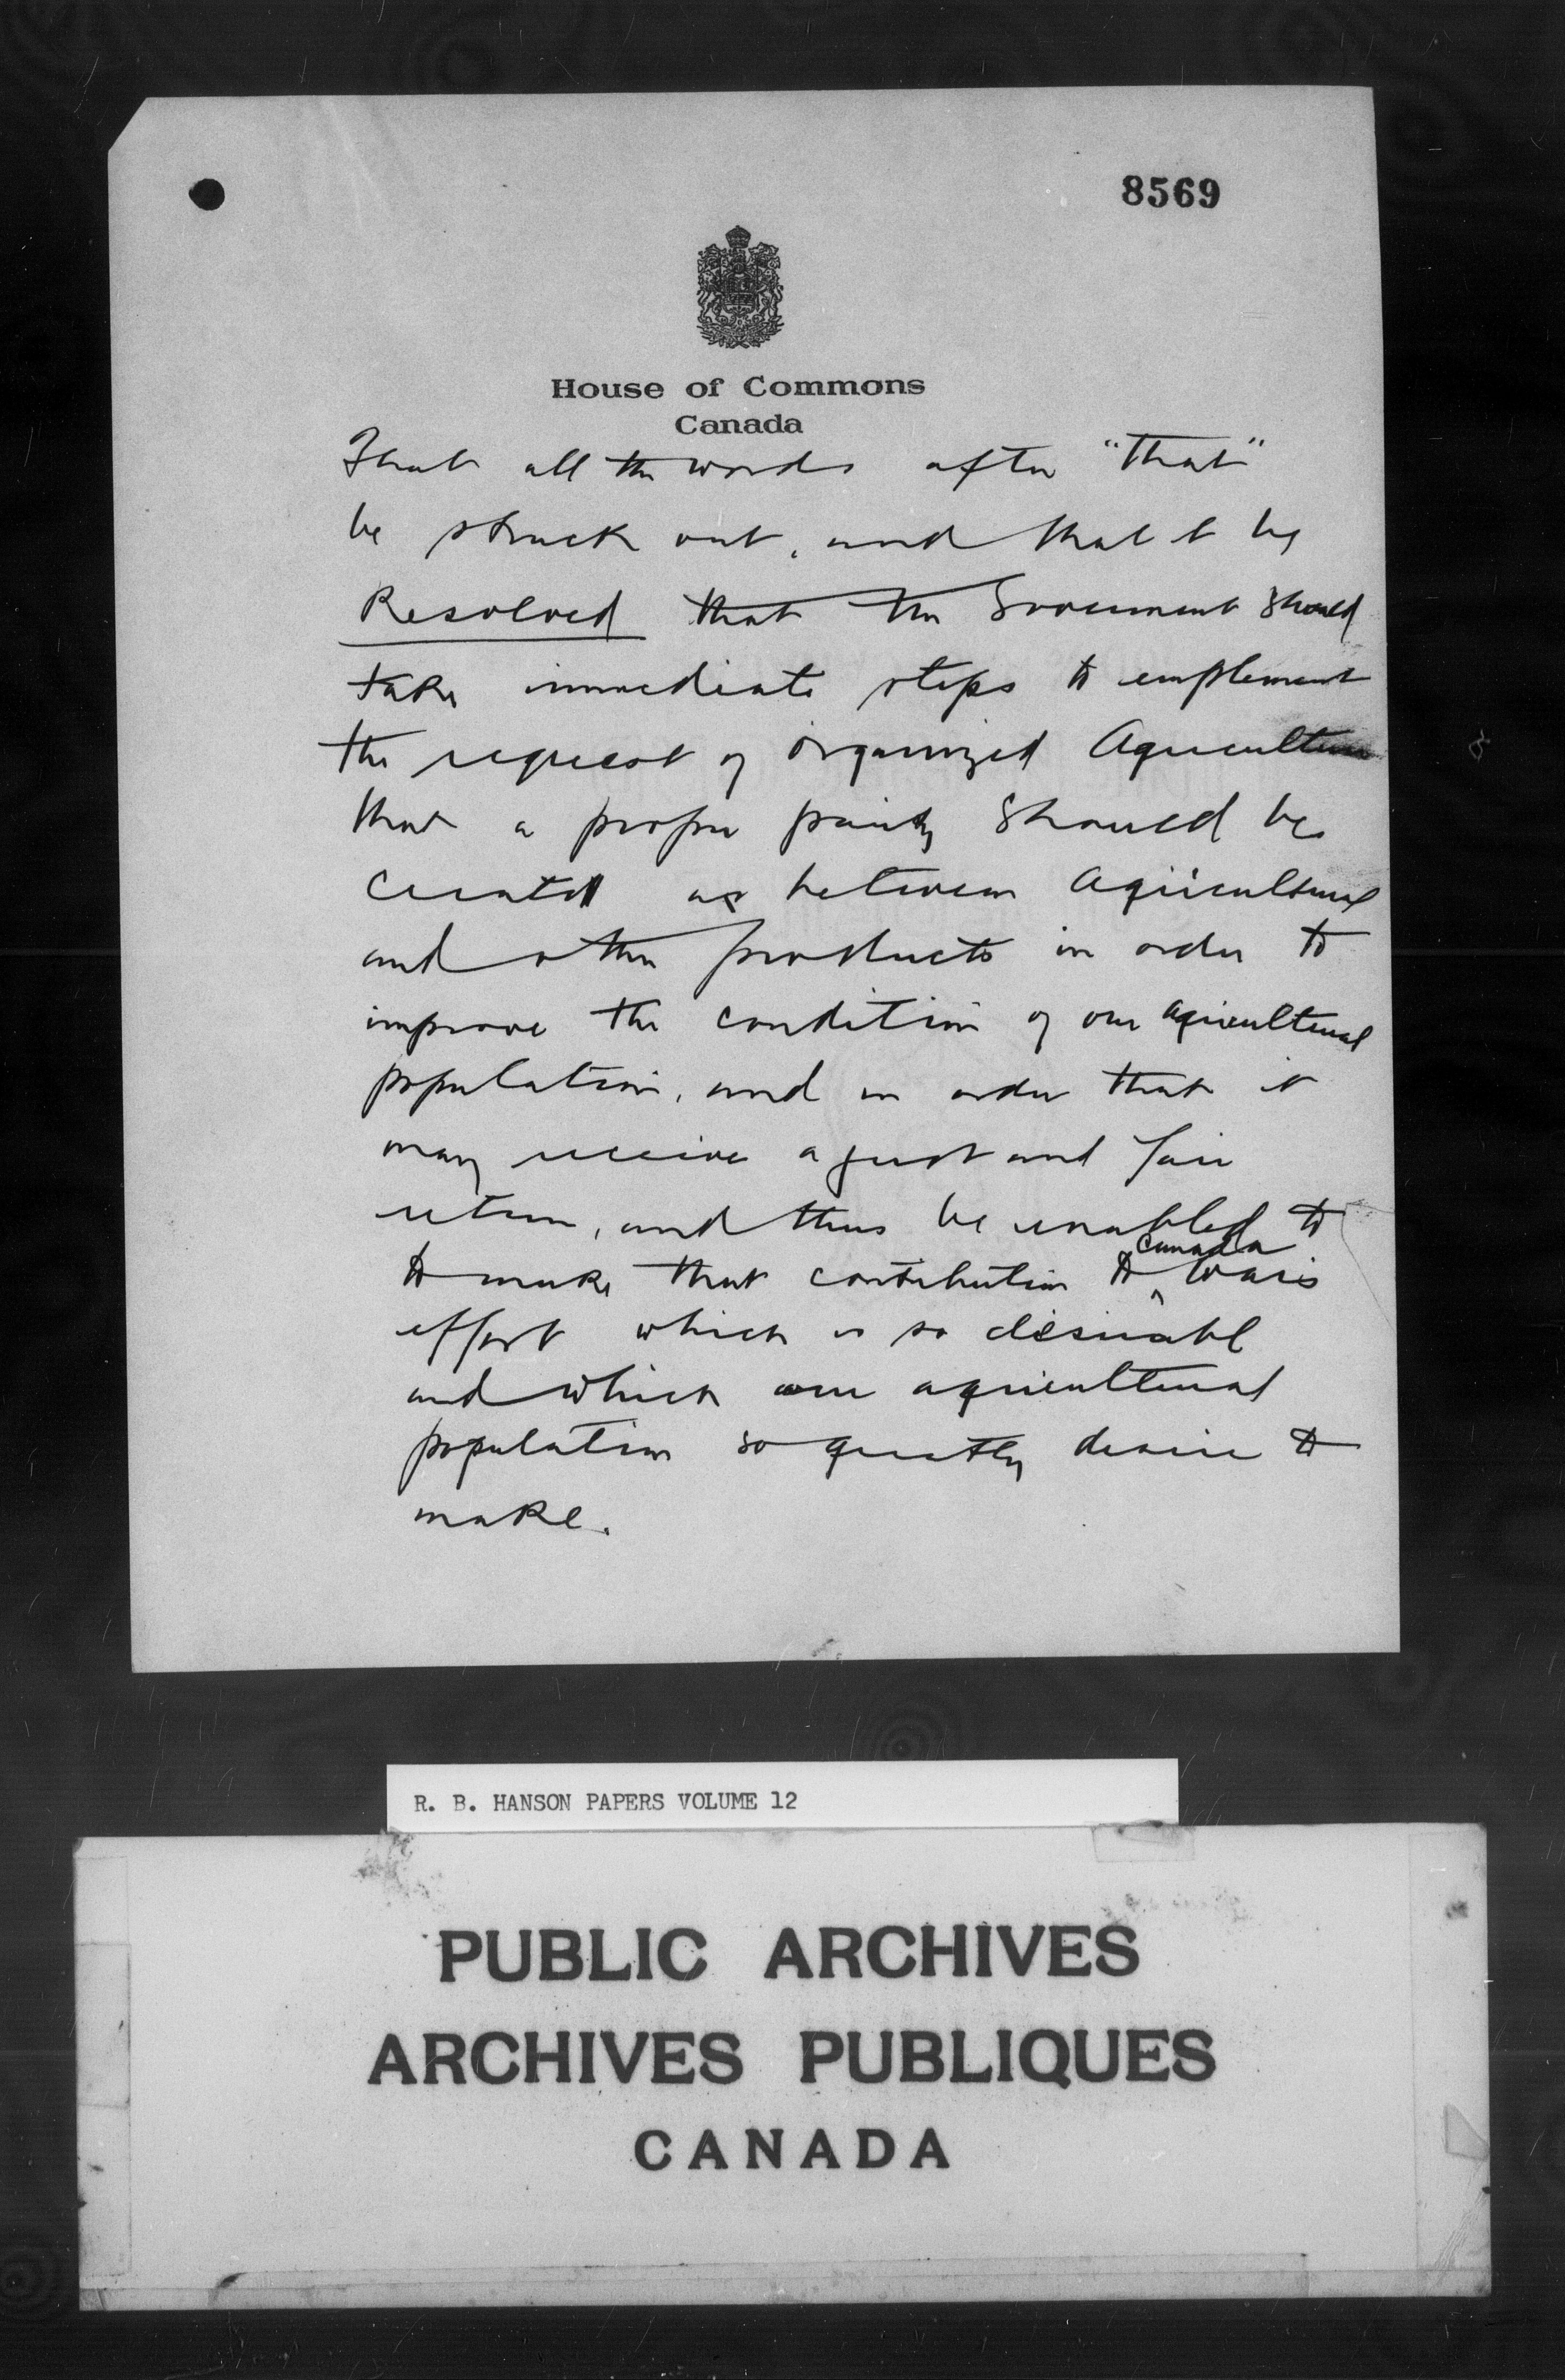 8569
House of Commons
Canada
That all the words after "that"
be struck out, and that it be
Resolved that the Government should
take immediate steps to implement
the request of organized Agriculture
that a proper parity should be
created as between Agricultural
and other products in order to
improve the condition of our agricultural
population, and in order that it
may receive a just and fair
return, and thus be enabled to
Canada
to make that contribution to ^ wars
effort which is so desirable
and which our agricultural
population so greatly desire to
make.
R. B. HANSON PAPERS VOLUME 12
PUBLIC ARCHIVES
ARCHIVES PUBLIQUES
CANADA